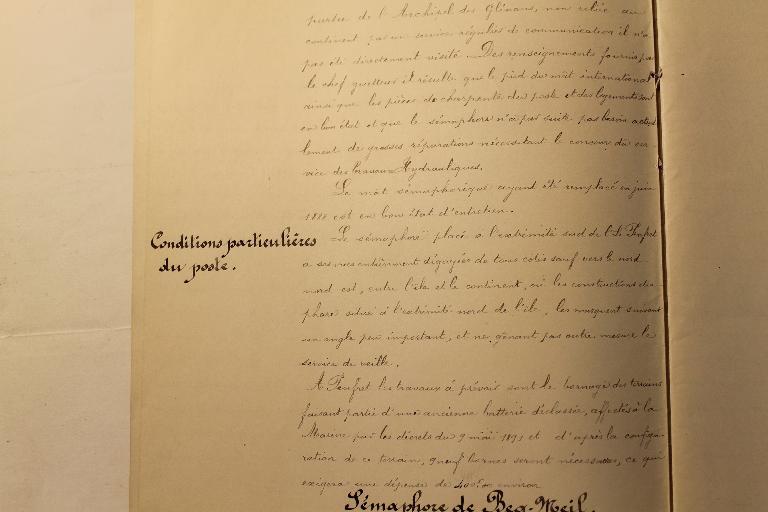 partie de l'Archipel des Glénans, non reliée au
continent par un service régulier de communication il n'a
pas été directement visité. Des renseignements fournis par
le chef guetteur il résulte que le pied du mât international
ainsi que les pièces de charpente du poste et des logements sont
en bon état et que le sémaphore n'a par suite pas besoin actuel
lement de grosses réparations nécessitant le concours du ser
vice des travaux Hydrauliques.
Le mât sémaphorique ayant été remplacé en juin
1888 est en bon état d'entretien.
Conditions particulières
du poste.
Le sémaphore placé à l'extrémité sud de l'I. Penfret
a ses vues entièrement dégagées de tous cotés sauf vers le nord
nord est, entre l'île et le continent, où les constructions du
phare situé à l'extrémité nord de l'île, les masquent suivant
un angle peu important, et ne gênant pas outre mesure le
service de veille.
A Penfret les travaux à prévoir sont le bornage des terrains
faisant partie d'une ancienne batterie déclassée, affectés à la
Marine par les décrets du 9 mai 1891 et d'après la configu
ration de ce terrain, 9 neuf bornes seront nécessaires, ce qui
exigera une dépense de 400 environ
Sémaphore de Beg-Meil.